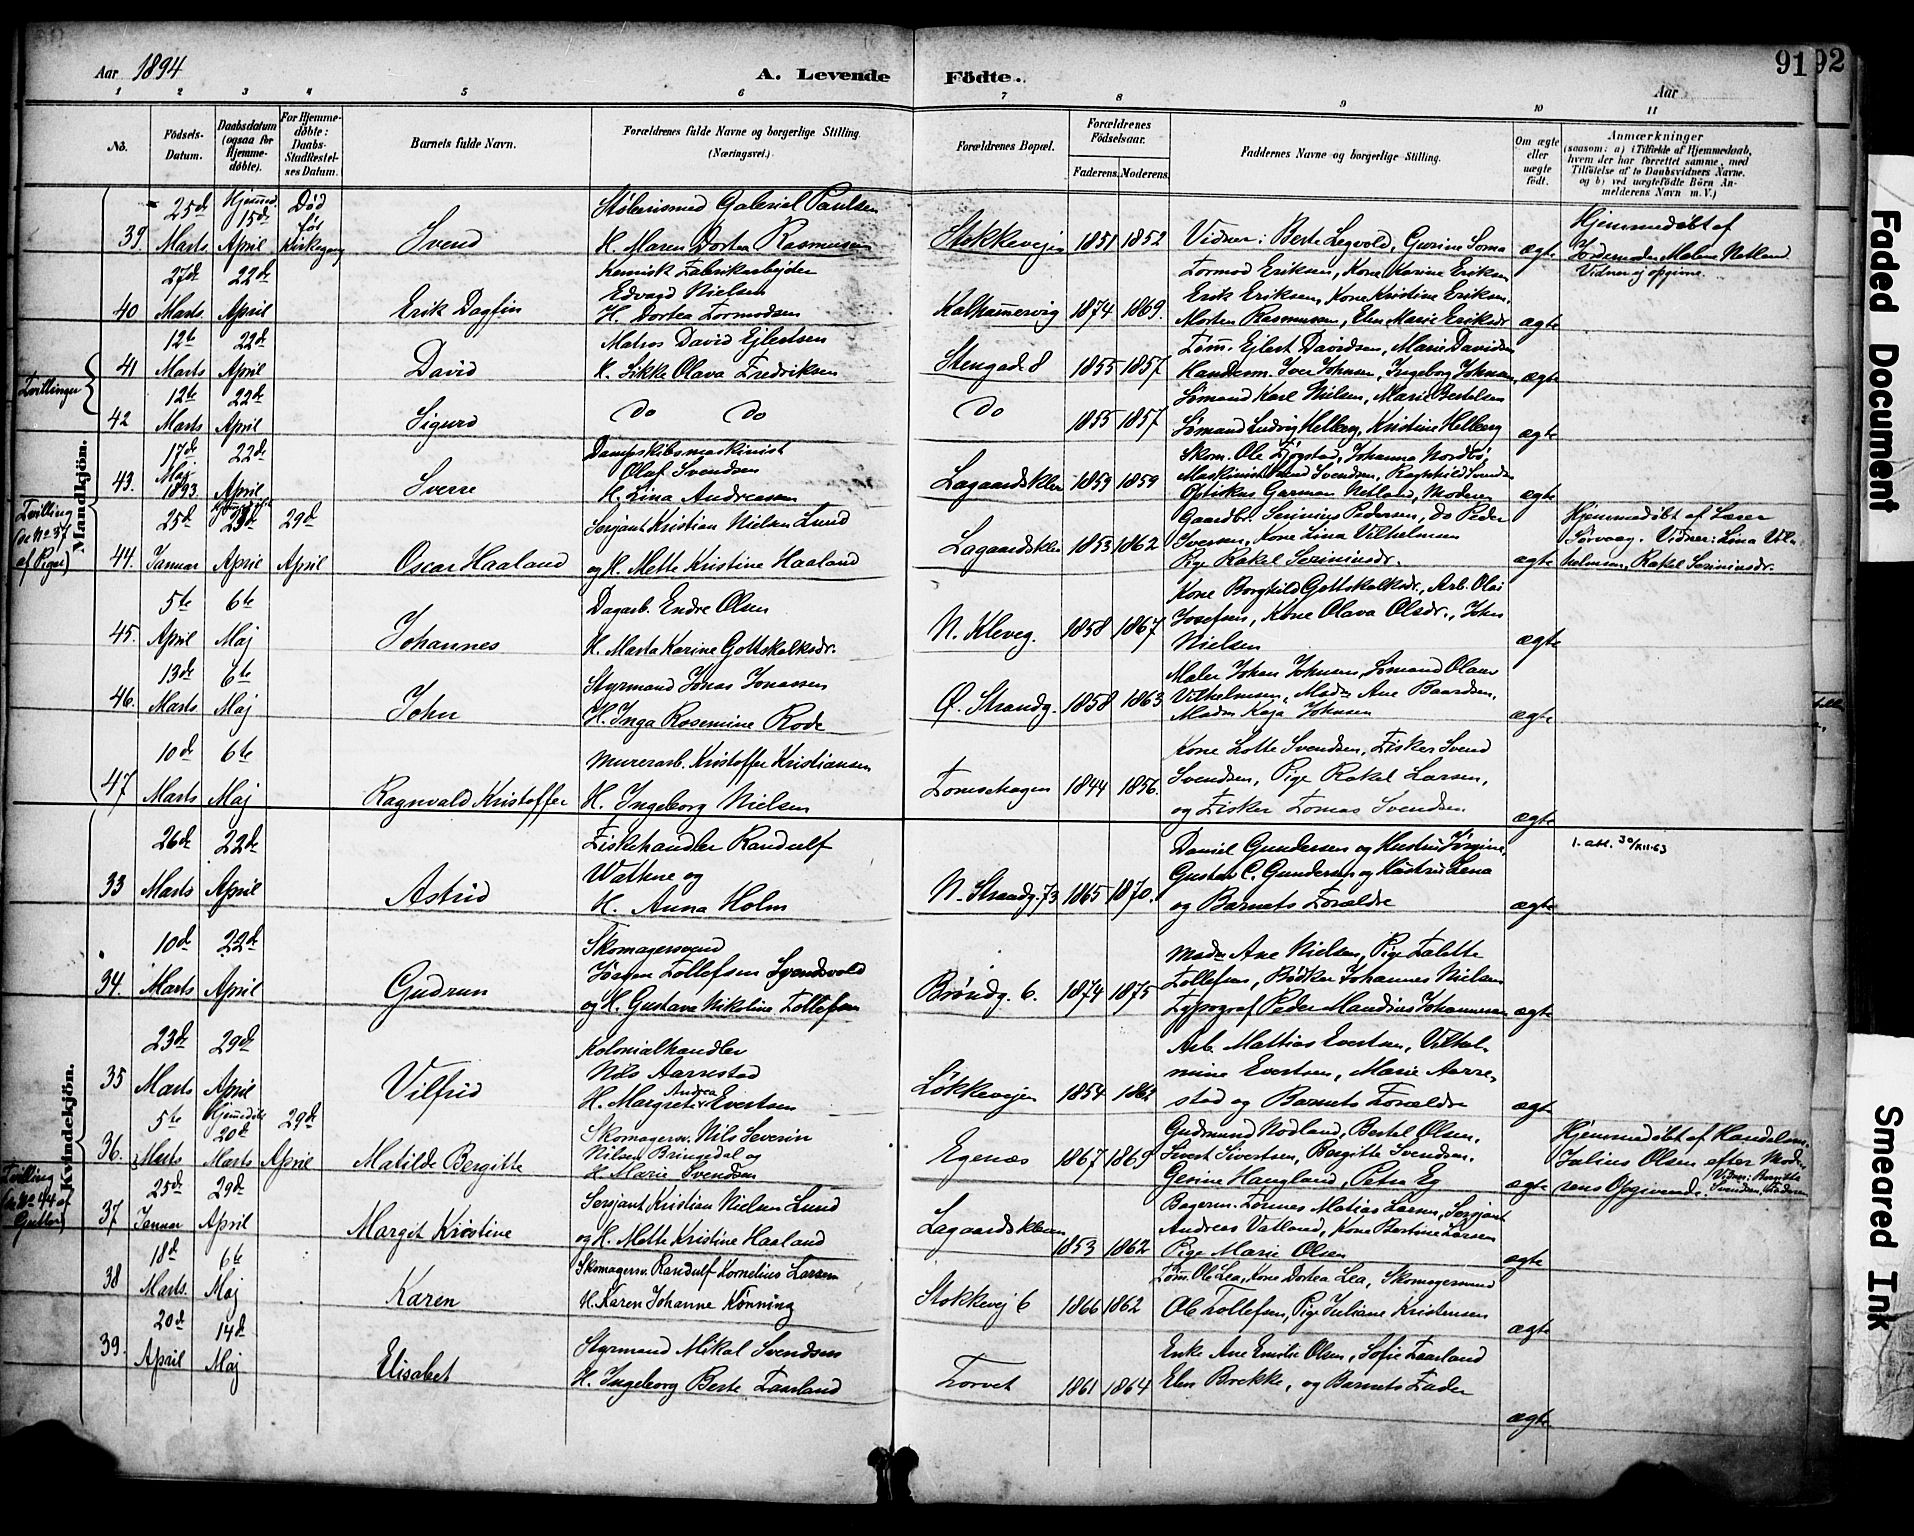 Aar 1894
A. Levende Födte.
Aar
91
92
1 2 3 4 5 6 7 8 9 10 11
No.
Födsels-Datum.
Daabsdatum (ogsaa for Hjemmedøbte).
For Hjemmedøbte: Daabs-Stadfæstelses Datum.
Barnets fulde Navn.
Forældrenes fulde Navne og borgerlige Stilling. (Næringsvei.)
Forældrenes Bopæl.
Forældrenes Födselsaar.
Faderens. Moderens.
Faddernes Navne og borgerlige Stilling.
Om ægte eller uægte födt.
Anmærkninger
(saasom: a) i Tilfælde af Hjemmedaab, hvem der har forrettet samme, med Tilföielse af to Daabsvidners Navne. og b) ved uægtefödte Börn Anmelderens Navn m. V.)
Mandkjön.
39. 25de Marts Hjemmed. 15de April Død før Kirkegang Svend
Støberismed Gabriel Paulsen
H. Maren Dortea Rasmussen
Stokkeveien 1851 1852
Vidner: Berte Legvold, Gurine Soma
ægte
Hjemmedøbt af
Jordemoder Malene Netland
Vidner ej opgivne.
40 27de Marts 22de April Erik Dagfin
kemisk Fabrikarbejder
Edvard Nielsen
H. Dortea Tormodsen
Kalhammervig 1874 1869.
Tormod Eriksen, Kone Karine Eriksen
Erik Eriksen, Kone Kristine Eriksen,
Morten Rasmussen, Elen Marie Eriksdr
ægte
Tvillinger
41 12te Marts 22de April David
Matros David Ejlertsen
H. Sikke Olava Fredriksen
Stengade 8 1855 1857
Tøm. Ejlert Davidsen, Marie Davidsen
Handelsm. Iver Johnsen, Ingeborg Johnsen,
ægte
42 12te Marts 22de April Sigurd
Do Do
Do 1855 1857
Sømand Karl Nielsen, Marie Bertelsen
Sømand Ludvig Helberg, Kristine Helberg
ægte
43. 17de Maj 1893 22de April Sverre
Dampskibsmaskinist
Oluf Svendsen
H. Lina Andreasen
Lagaardsklev 1859 1859
Skom. Ole Fjogstad, Johanna Nordbö,
Maskinist Svend Svendsen, Ragnhild Svendsen
Optikus Garman Netland, Moderen
ægte
Tvilling
(se No 37
af Piger)
44. 25de Januar 23de April 29de April Oscar Haaland
Sersjant Kristian Nielsen Lund
og H. Mette Kristine Haaland
Lagaardsklev 1853 1862
Gaardbr. Serinius Pedersen, do Peder
Iversen, Kone Lina Vilhelmsen
Pige Rakel Seriniusdr.
ægte
Hjemmedøbt af Lærer
Sørvaag. Vidner: Lina Vil-
helmsen, Rakel Seriniusdr.
45. 5te April 6te Maj Johannes
Dagarb. Endre Olsen
H. Marta Karine Gottskalksdr.
N. Kleveg. 1858 1867
Kone Borghild Gottskalksdr., Arb. Olai
Josefsen, Kone Olava Olsdr., John
Nielsen
ægte
46. 13de Marts 6te Maj John
Styrmand Jonas Jonassen
H. Inga Rosemine Rode
Ø. Strandg. 1858 1863
Maler Johan Johnsen, Sømand Olaus
Vilhelmsen, Madm Ane Baardsen,
Madm Kaja Johnsen
ægte
47 10de Marts 6te Maj Ragnvald Kristoffer
Murerarb. Kristoffer Kristiansen
H. Ingeborg Nielsen
Tomsehagen 1844 1856.
Kone Lotte Svendsen, Fisker Svend
Svendsen, Pige Rakel Larsen,
og Fisker Tomas Svendsen
ægte
Kvindekjön.
33 26de Marts 22de April Astrid
Fiskehandler Randulf
Wathne og
H. Anna Holm
N. Strandg. 73 1865 1870.
Daniel Gundersen og Hustru Jørgine,
Gustav C. Gundersen og Hustru Lena
og Barnets Forældre
ægte
1. att. 30/XII-63
34. 10de Marts 22de April Gudrun
Skomagersvend
Jörgen Tollefsen Svendsvold
og H. Gustava Nikoline Tollefsen
Bröndg. 6. 1874 1875
Madm Ane Nielsen, Pige Talette
Tollefsen, Bødker Johannes Nielsen
Typograf Peder Mandius Johannesen
ægte
35 23de Marts 29de April Vilfrid
Kolonialhandler
Nils Aarrestad
H. Margrete Andrea Evertsen
Løkkeveien 1854 1862
Arb. Mattias Evertsen, Vilhel-
mine Evertsen, Marie Aarre-
stad og Barnets Forældre
ægte
36. 5te Marts Hjemmedøbt 20de Marts 29de April Matilde Bergitte
Skomagersv. Nils Severin
Nilsen Bringedal og
H. Marie Svendsen
Egenæs 1867 1869
Gudmund Nodland, Bertel Olsen,
Sivert Sivertsen, Bergitte Svendsen,
Gerine Haugland, Petra Eg
ægte
Hjemmedøbt af Handelsm.
Julius Olsen efter Mode-
rens Opgivende. Vidner: Bergitte Svendsen, Faderen
Tvilling
(se No 44 af
Gutter)
37 25de Januar 29de April Margit Kristine
Sersjant Kristian Nielsen Lund
og H. Mette Kristine Haaland
Lagaardskleven 1853 1862
Bagerm. Tønnes Matias Larsen, Sersjant
Andreas Vatland, Kone Bertine Larsen
Pige Marie Olsen
ægte
38 18de Marts. 6te Maj Karen
Skomagersv. Randulf Kornelius Larsen
H. Karen Johanne Könning
Stokkevej 6 1866 1862
Tøm. Ole Lea, Kone Dortea Lea, Skomagersvend
Ole Tollefsen, Pige Juliane Kristensen
ægte
39. 20de April 14de Maj Elisabet
Styrmand Mikal Svendsen
H. Ingeborg Berte Faarland
Torvet 1861 1864
Enke Ane Emilie Olsen, Sofie Faarland
Elen Brekke, og Barnets Fader
ægte
Faded Document
Smeared Ink